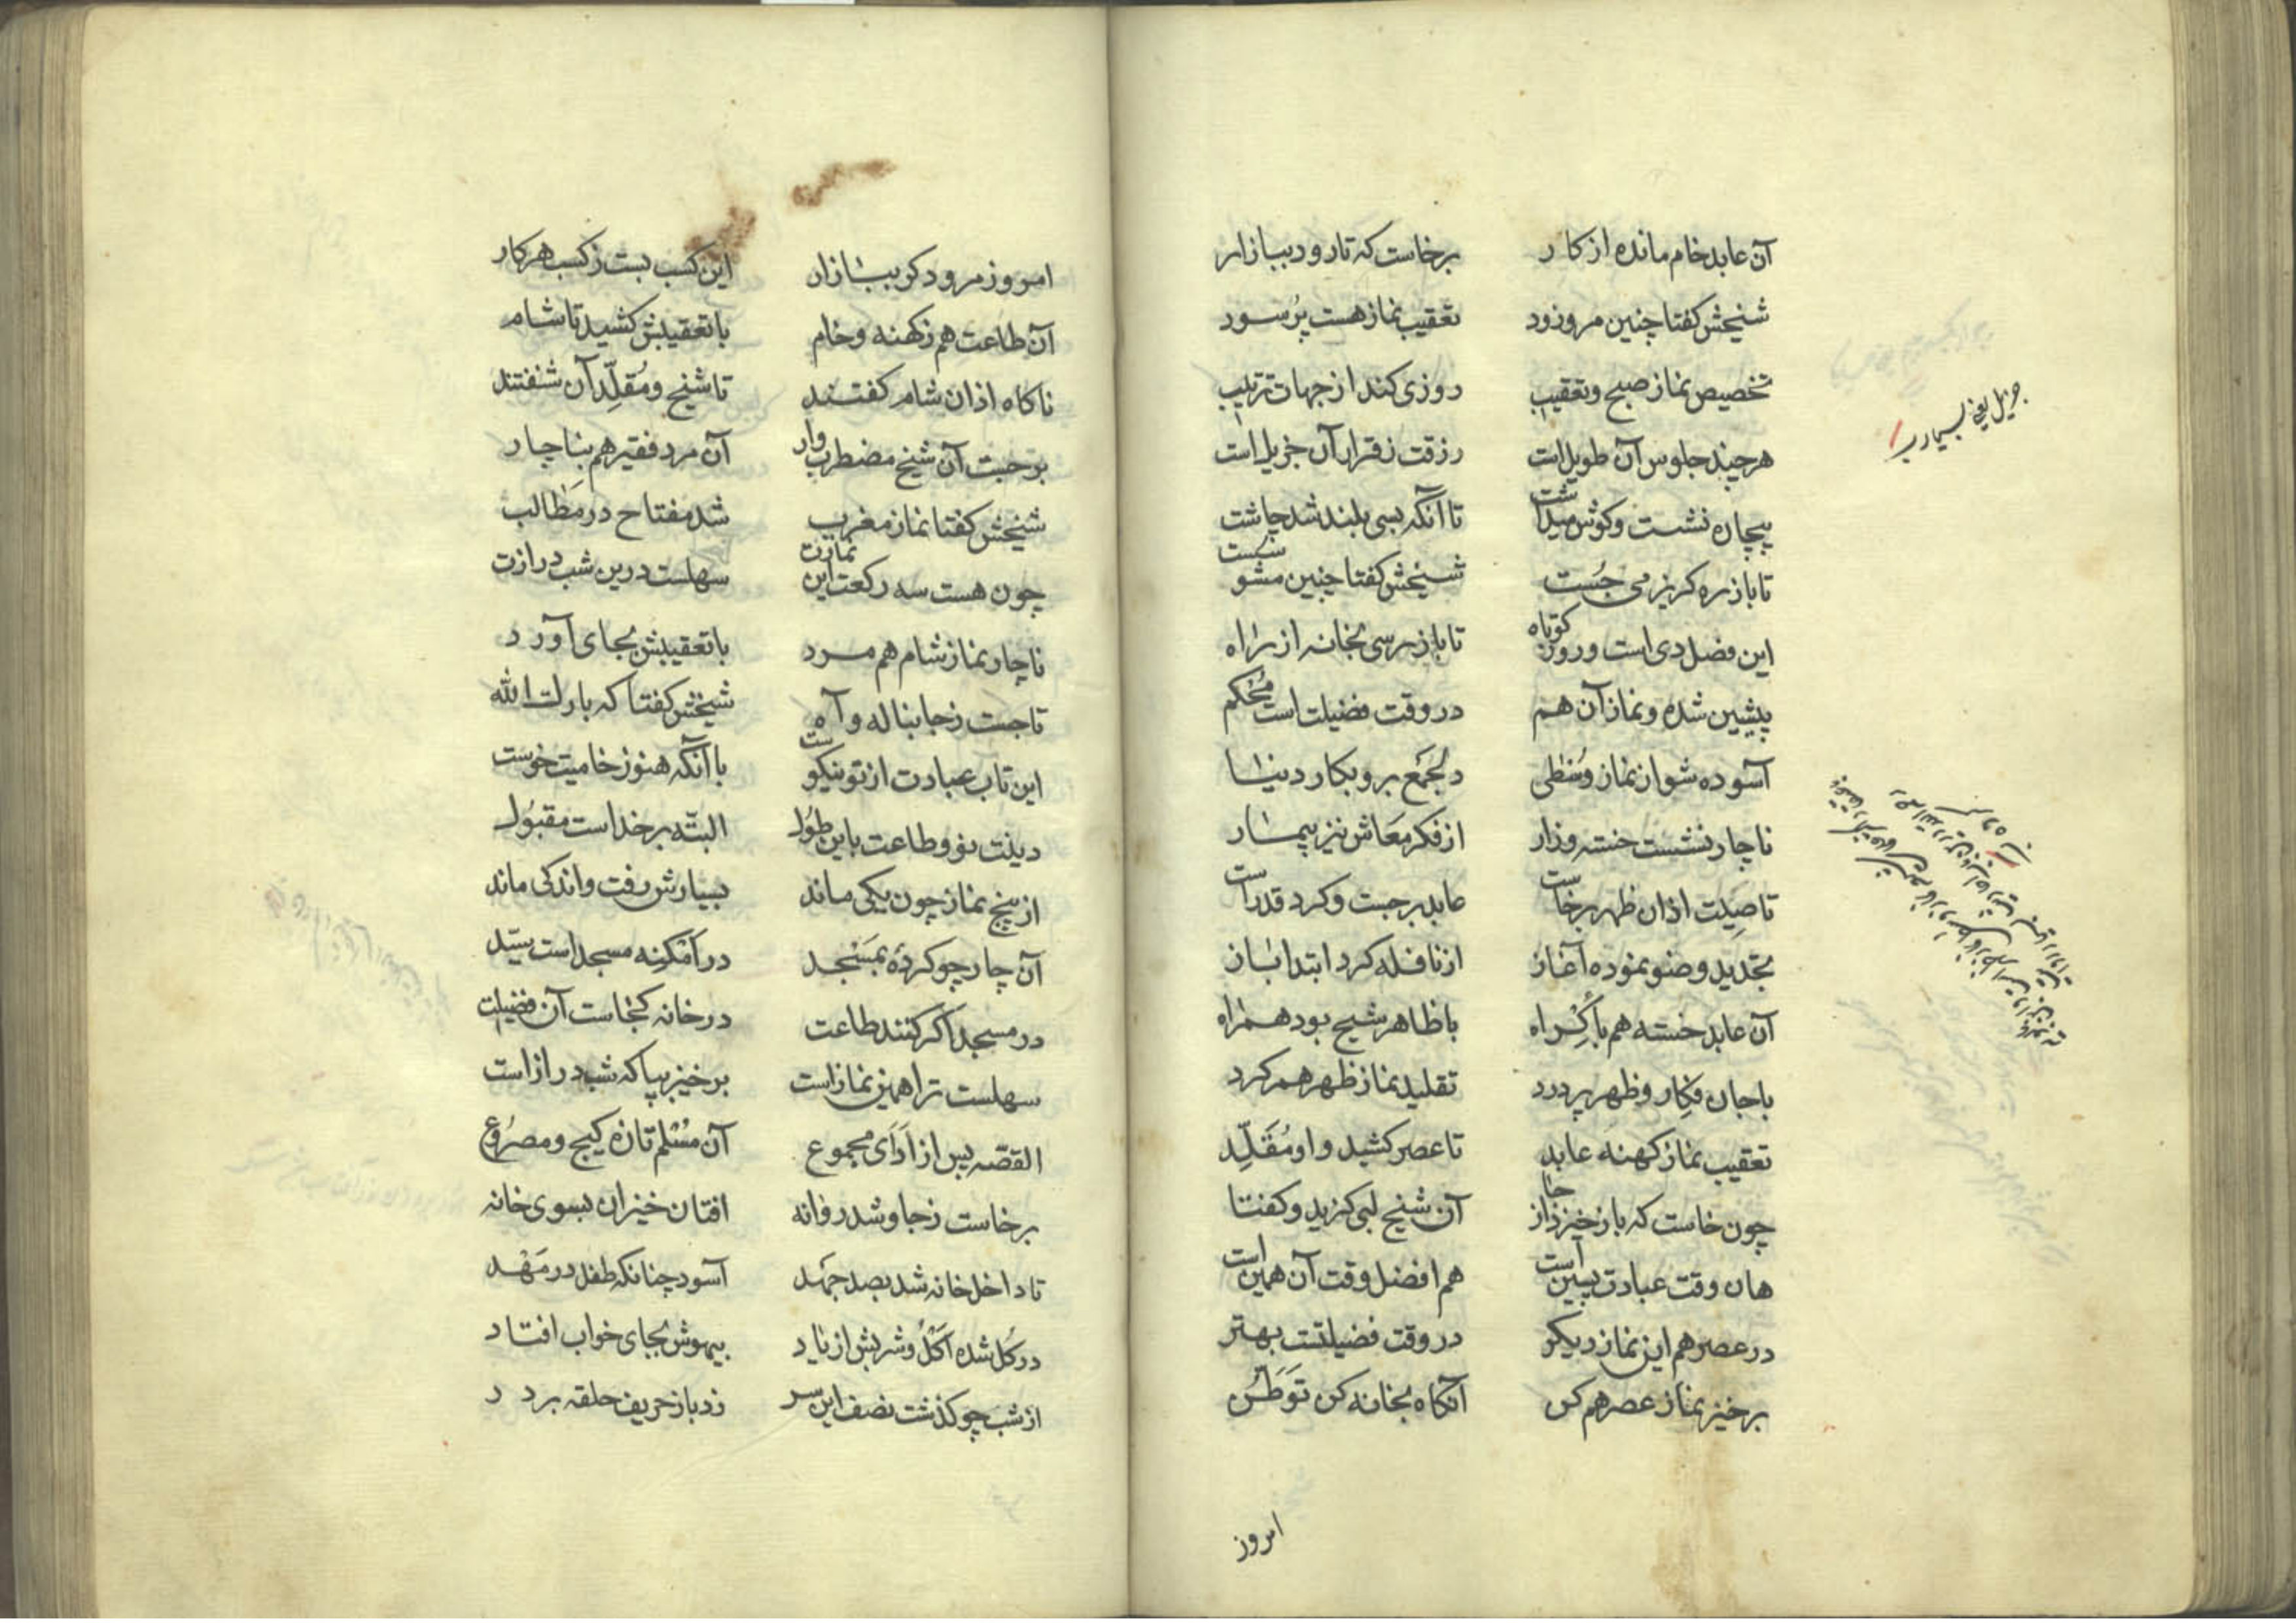 آن عابد خام مانده از کار برخاست که تا رود ببازار
شیخش کفتا چنین مرو زود تعقیب نماز هست پرسود
تخصیص نماز صبح و تعقیب روزی کند از جهات ترتیب
هرچند جلوس آن طویل است رزقت زقرار آن جزیل است
بیچاره نشست وکوش میداشت تا آنکه بسی بلند شد چاشت
تا باز ره کریز می جُست شیخش کفتا چنین مشو سست
این فصل دی است و روز کوتاه تا باز رسی بخانه از راه
پیشین شده و نماز آن هم در وقت فضیلت است مُحکم
آسوده شو از نماز وُسطی دلجَمع برو بکار دنیا
ناچار نشست خسته وزار از فکر مَعاش نیز بیمار
تا صِیت اذان ظهر برخاست عابد برجست و کرد قد راست
تجدید وضو نموده آغاز از نافله کرد ابتدا باز
آن عابد خسته هم باکِراه با ظاهر شیخ بود همراه
با جان فکار و ظهر پر درد تقلید نماز ظهر هم کرد
تعقیب نماز کهنه عابد تا عصر کشید و او مُقَلِّد
چون خاست که باز خیزد از جا آن شیخ لبی کزید و کفتا
هان وقت عبادت پسین است هم افضل وقت آن همین است
در عصر هم این نماز دیکر در وقت فضیلتست بهتر
برخیز نماز عصر هم کن آنکاه بخانه کن تَوَطُّن
جزیل یعنی بسیار
امروز
امروز مرو دکر ببازار این کسب بست زکسب هرکار
آن طاعت هم زکهنه وخام با تعقیبش کشید تا شام
ناکاه اذان شام کفتند تا شیخ و مُقلِّد آن شنفتند
برجست آن شیخ مضطرب وار آن مرد فقیر هم بناچار
شیخش کفتا نماز مغرب شد مفتاح در مَطالب
چون هست سه رکعت این نمازت سهلست درین شب درازت
ناچار نماز شام هم مرد با تعقیبش بجای آورد
تا جست زجا بناله و آه شیخش کفتا که بارک الله
این تاب عبادت از تو نیکوست با آنکه هنوز خامیت خوست
دینت نو و طاعت باین طول البتّه برخداست مقبُول
از پنج نماز چون یکی ماند بسیارش رفت و اندکی ماند
آن چار چو کردهٔ بمَسْجد در اَمْکنِه مسجد است سیّد
در مسجد اکر کنند طاعت در خانه کجاست آن فضیلت
سهلست ترا همین نماز است برخیز بپا که شب دراز است
القصّه پس از اَدَای مجموع آن مُسْلم تازه کیج و مصرُوع
برخاست زجا و شد روانه افتان خیزان بسوی خانه
تا داخل خانه شد بصد جهد آسود چنانکه طفل در مَهْد
در کل شده اَکْلُ و شربش از یاد بیهوش بجای خواب افتاد
از شب چو کذشت نصف این سر زد باز حریف حلقه بر در